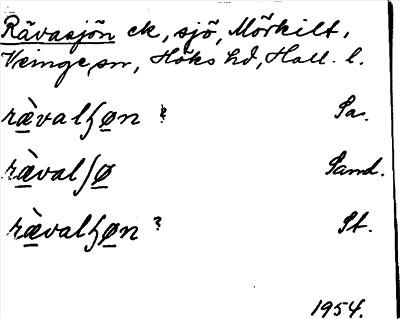 Rävasjön ek, sjö, Mörkilt,
Veinge sn, Höks hd, Hall. l.
ræ̀valʃøn ? Sa.
ræ̀valʃø Sand.
ræ̀valʃøn ? St.
1954.